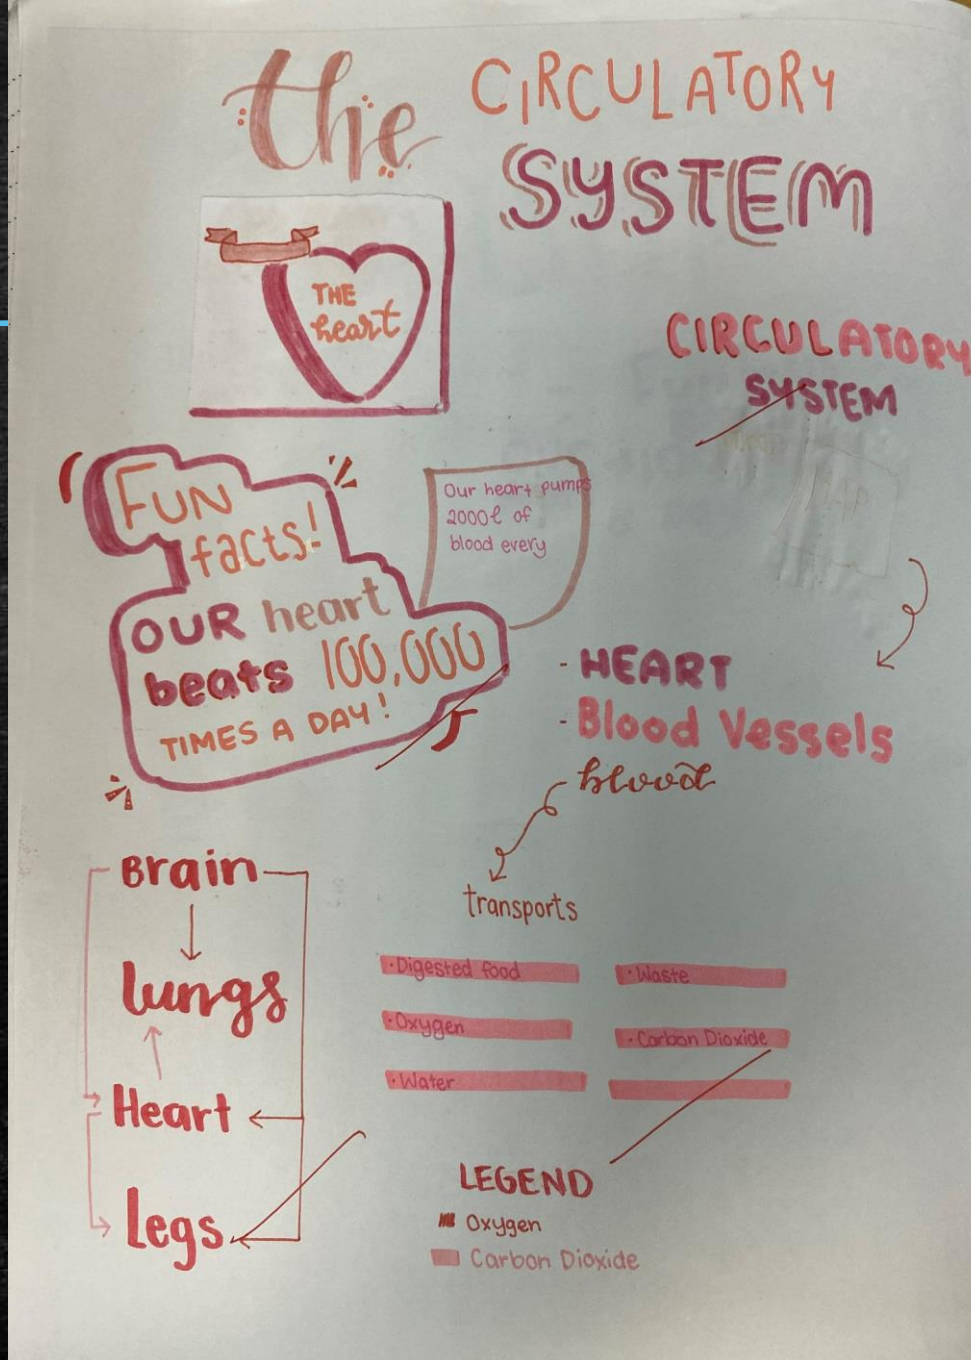 the CIRCULATORY
SYSTEM
THE
heart
CIRCULATORY
SYSTEM
FUN
facts!
OUR heart
beats 100,000
TIMES A DAY!
Our heart pumps
2000l of
blood every
- HEART
- Blood Vessels
blood
transports
• Digested food
• Oxygen
• Water
• Waste
• Carbon Dioxide
Brain
Lungs
Heart
Legs
LEGEND
Oxygen
Carbon Dioxide